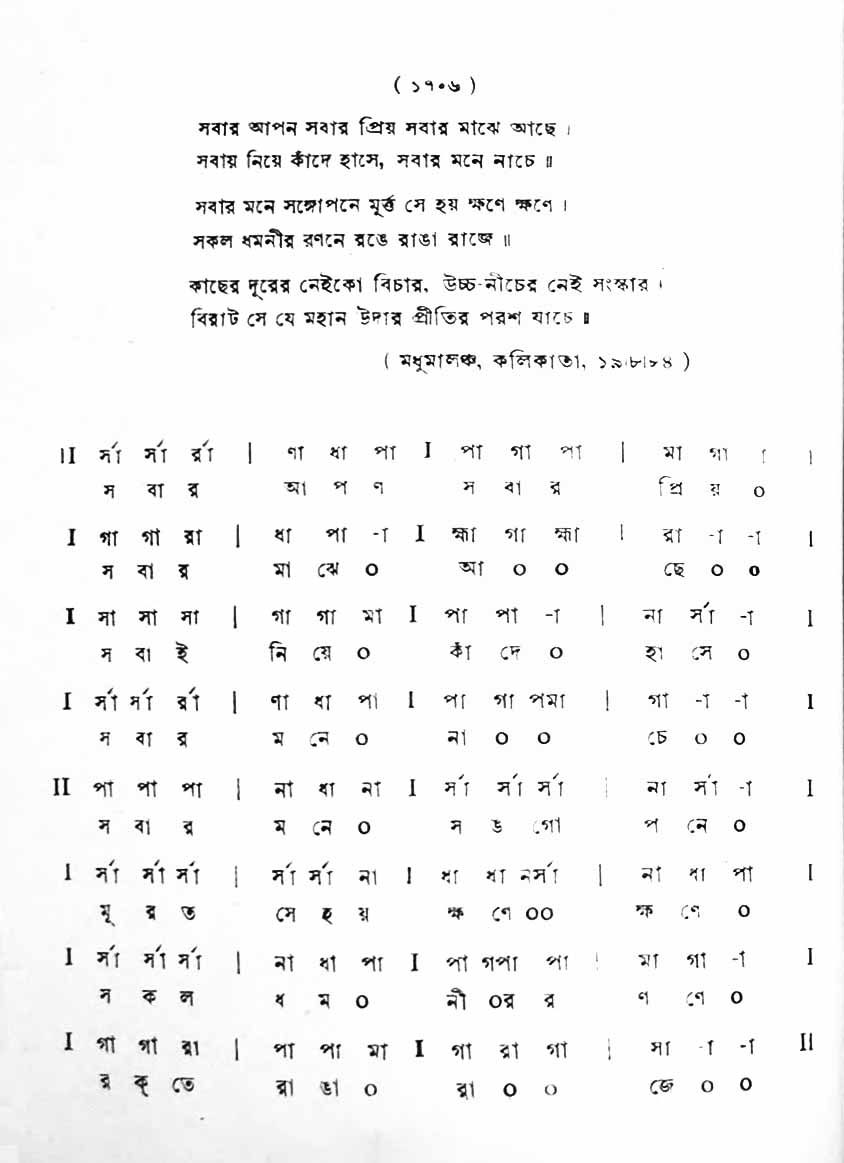 ( ১৭০৬ )
সবার আপন সবার প্রিয় সবার মাঝে আছে ।
সবায় নিয়ে কাঁদে হাসে, সবার মনে নাচে ॥
সবার মনে সঙ্গোপনে মূর্ত্ত সে হয় ক্ষণে ক্ষণে ।
সকল ধমনীর রণনে রঙে রাঙা রাজে ॥
কাছের দূরের নেইকো বিচার, উচ্চ-নীচের নেই সংস্কার ।
বিরাট সে যে মহান উদার প্রীতির পরশ যাচে ॥
( মধুমালঞ্চ, কলিকাতা, ১৯।৮।৮৪ )
II র্সা র্সা র্রা | ণা ধা পা I পা গা পা | মা গা -া I
স বা র আ প ণ স বা র প্রি য় ০
I গা গা রা | ধা পা -া I হ্মা গা হ্মা | রা -া -া I
স বা র মা ঝে ০ আ ০ ০ ছে ০ ০
I সা সা সা | গা গা মা I পা পা -া | না র্সা -া I
স বা ই নি য়ে ০ কাঁ দে ০ হা সে ০
I র্সা র্সা র্রা | ণা ধা পা I পা গা পমা | গা -া -া I
স বা র ম নে ০ না ০ ০ চে ০ ০
II পা পা পা | না ধা না I র্সা র্সা র্সা | না র্সা -া I
স বা র ম নে ০ স ঙ গো প নে ০
I র্সা র্সা র্সা | র্সা র্সা না I ধা ধা নর্সা | না ধা পা I
মূ র ত সে হ য় ক্ষ ণে ০০ ক্ষ ণে ০
I র্সা র্সা র্সা | না ধা পা I পা গপা পা | মা গা -া I
স ক ল ধ ম ০ নী ০র র ণ ণে ০
I গা গা রা | পা পা মা I গা রা গা | সা -া -া II
র ক্ তে রা ঙা ০ রা ০ ০ জে ০ ০